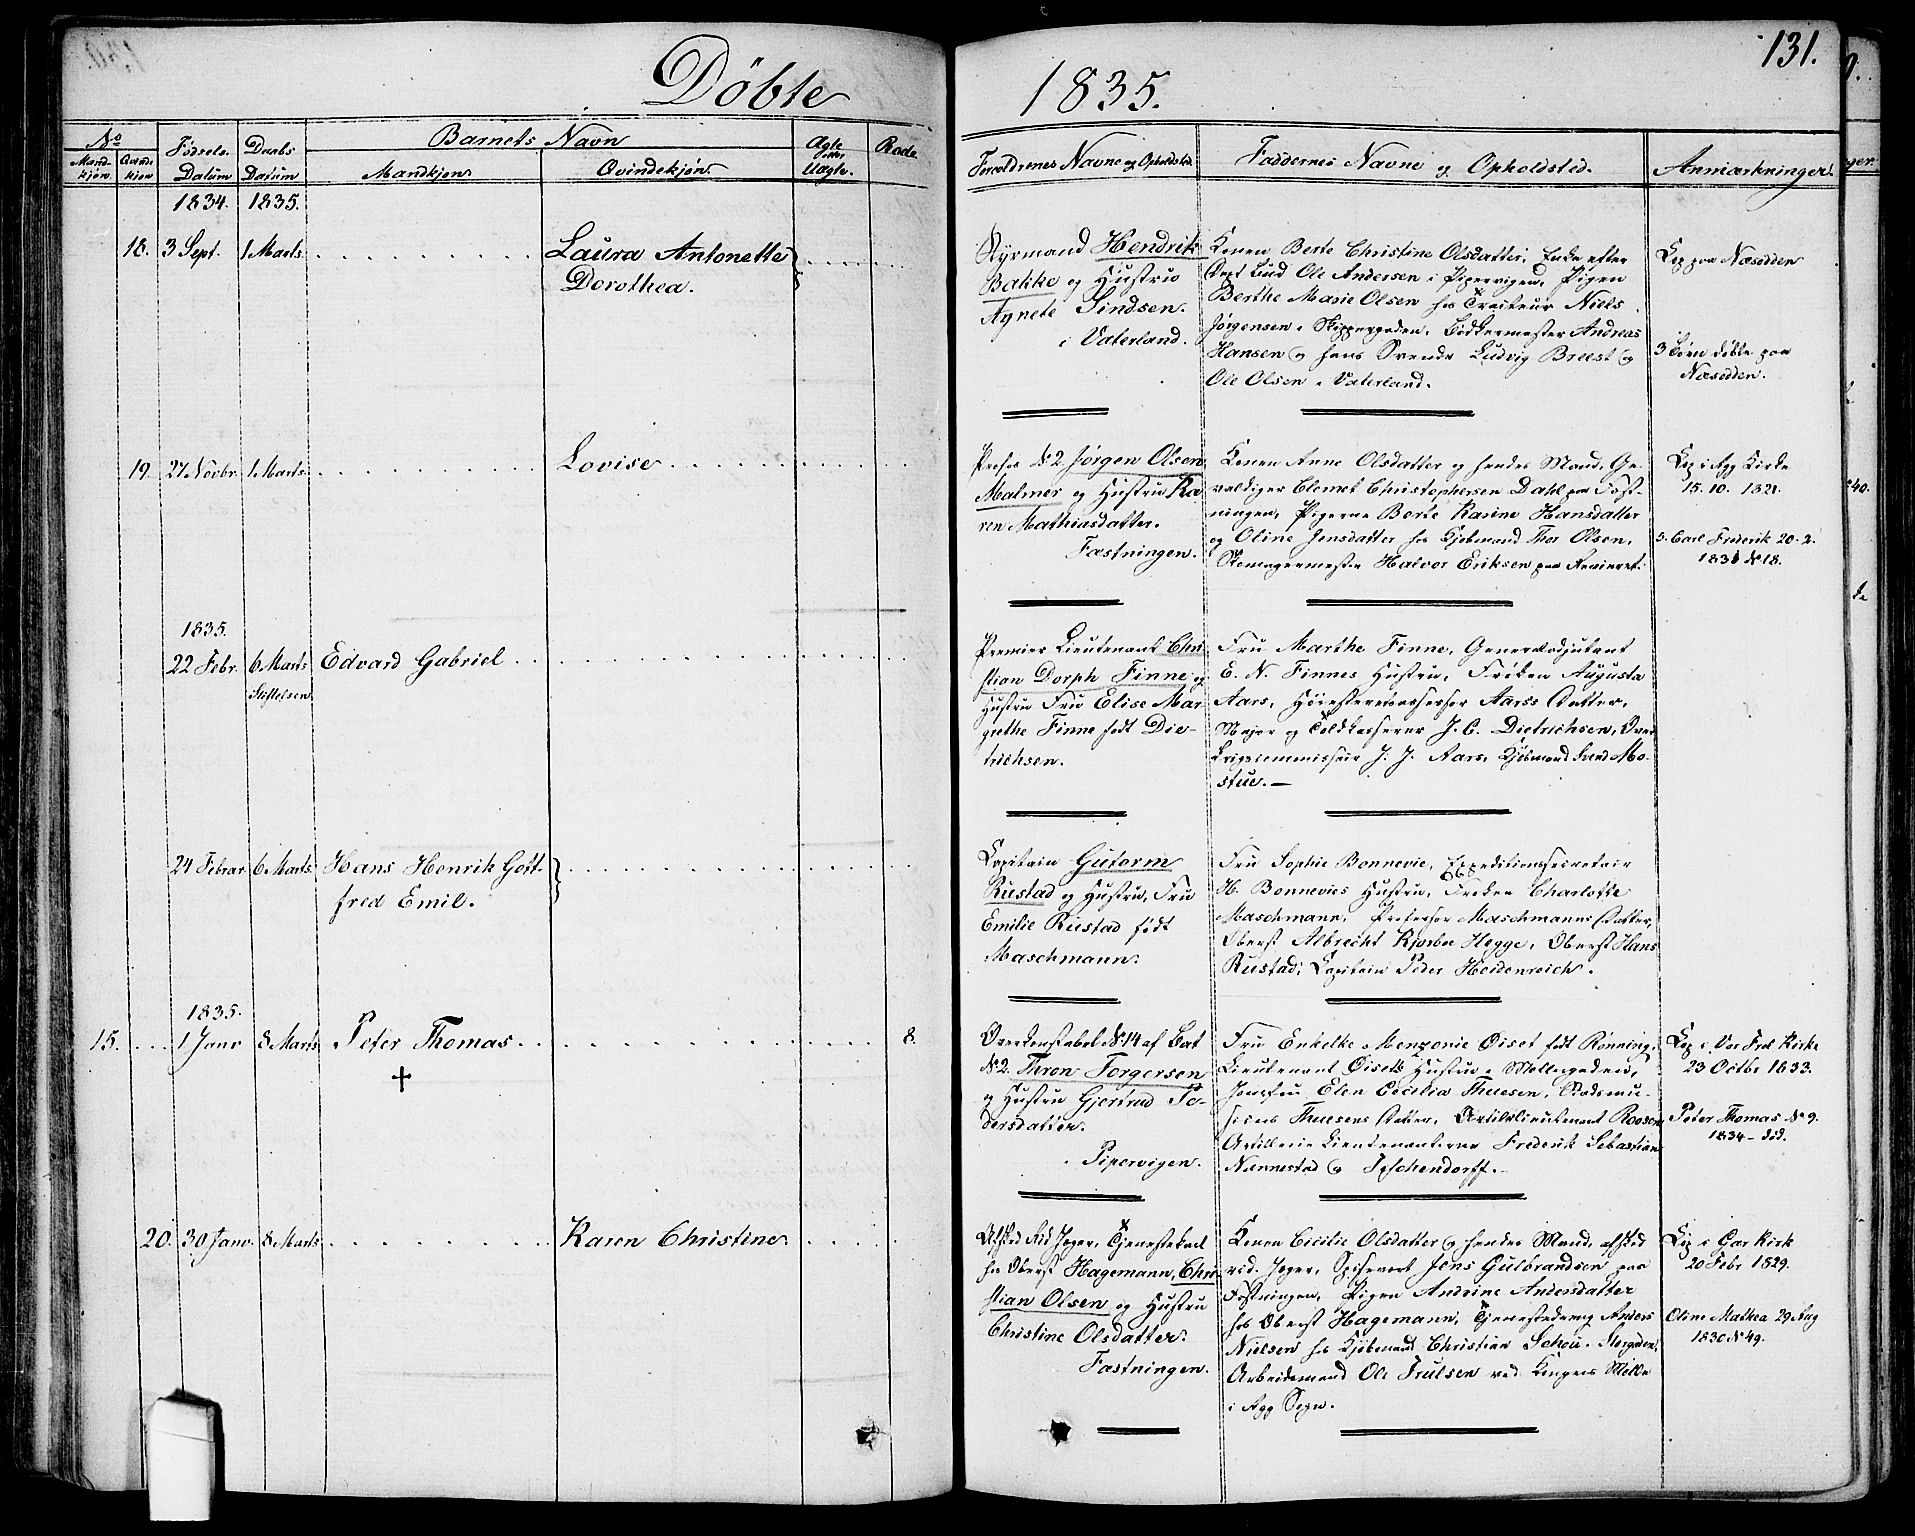 Döbte
1835.
131.
No
Mand-
kjön
Qvinde
kjön
Födsels
Datum
Daabs
Datum
Barnets Navn
Mandkjön
Qvindekjön.
Ægte
eller
Uægte.
Rode
Forældrenes Navne og Opholdsted
Faddernes Navne og Opholdsted.
Anmærkninger.
1834. 1835.
18. 3 Sept. 1 Marts
Laura Antonette
Dorothea.
Styrmand Hendrik
Bakke og Hustrue
Agnete Sindsen.
i Vaterland.
Konen Berte Christine Olsdatter, Enke efter
Ole Andersen i Pipervigen, Pigen
Berthe Marie Olsen hos Traiteur Niels
Jörgensen i Skippergaden, Bödkermester Andreas
Hansen og hans Svende Ludvig Breest og
Ole Olsen i Vaterland.
Cop paa Næsodden
3 Börn döbte paa
Næsodden.
19. 27 Novbr. 1 Marts
Lovise
Profos No 2 Jörgen Olsen
Malmer og Hustru Ka
ren Mathiasdatter.
Fæstningen.
Konen Anne Olsdatter og hendes Mand, Ge-
valdiger Clemet Christophersen Dahl paa Fæst-
ningen, Pigerne Berte Karine Hansdatter
og Oline Jensdatter hos Kjöbmand Thor Olsen,
Skomagermester Halvor Eriksen paa
Cop i Agg Kirke
15. 10. 1821.
3. Carl Frederik 20-2
1831 No 18.
1835.
22 Febr. 6 Marts
Stiftelsen
Edvard Gabriel
Premier Lieutenant Chri
stian Dorph Finne og
Hustru Fru Elise Mar-
grethe Finne födt Die-
trichsen.
Fru Marthe Finne, Generaladjutant
E. N. Finnes Hustru, Fröken Augusta
Aars, Höiesteretsassessor Aarss Datter,
Major og Toldkasserer J. C. Dietrichsen, Over
krigscommissair J. J. Aars, Kjöbmand Mo-
stue.
24 Febrar 6 Marts
Hans Henrik Gott-
fred Emil.
Capitain Gutorm
Rustad og Hustru, Fru
Emilie Rustad födt
Maschmann.
Fru Sophie Bonnevie, Expeditionssecretair
H. Bonnevies Hustru, Fröken Charlotte
Maschmann, Professor Maschmanns Datter,
Oberst Albrecht Kjorboe Hegge, Oberst Hans
Rustad, Capitain Peder Heidenreich.
1835.
15. 1 Janv 8 Marts
Peter Thomas
8.
Overkonstabel No 14 af Bat
No 2. Thron Torgersen
og Hustru Gjertrud Pe-
dersdatter.
Pipervigen.
Fru Enkelke Menzonie Öiset födt Rönning,
Lieutenant Öisets Hustru i Möllergaden,
Jomfru Elen Cecilia Thuesen, Stadsmu-
Thuesens Datter, Lieutenant Roosen
Artillerie Lieutenanterne Frederik Sebastian
Nannestad og
Cop i Vor Frel Kirke
23 Octbr 1833.
Peter Thomas No 9.
1834 - död.
20. 30 Janv. 8 Marts
Karen Christine
Afsked Rid Jeger, Tjenestekarl
hos Oberst Hagemann, Chri
stian Olsen og Hustru
Christine Olsdatter.
Fæstningen.
Konen Cicilie Olsdatter og hendes Mand, afsked
rid. Jeger, Spisevært Jens Gulbrandsen paa
Fæstningen, Pigen Andrine Andersdatter
hos Oberst Hagemann, Tjenestedreng Anders
Nielsen hos Kjöbmand Christian Schou i Storgaden,
Arbeidsmand Ole Trulsen ved Kongens Mölle
i Agg Sogn.
Cop i Gar Kirk
20 Febr 1829.
Oline Mathea 29 Aug
1830 No 49.